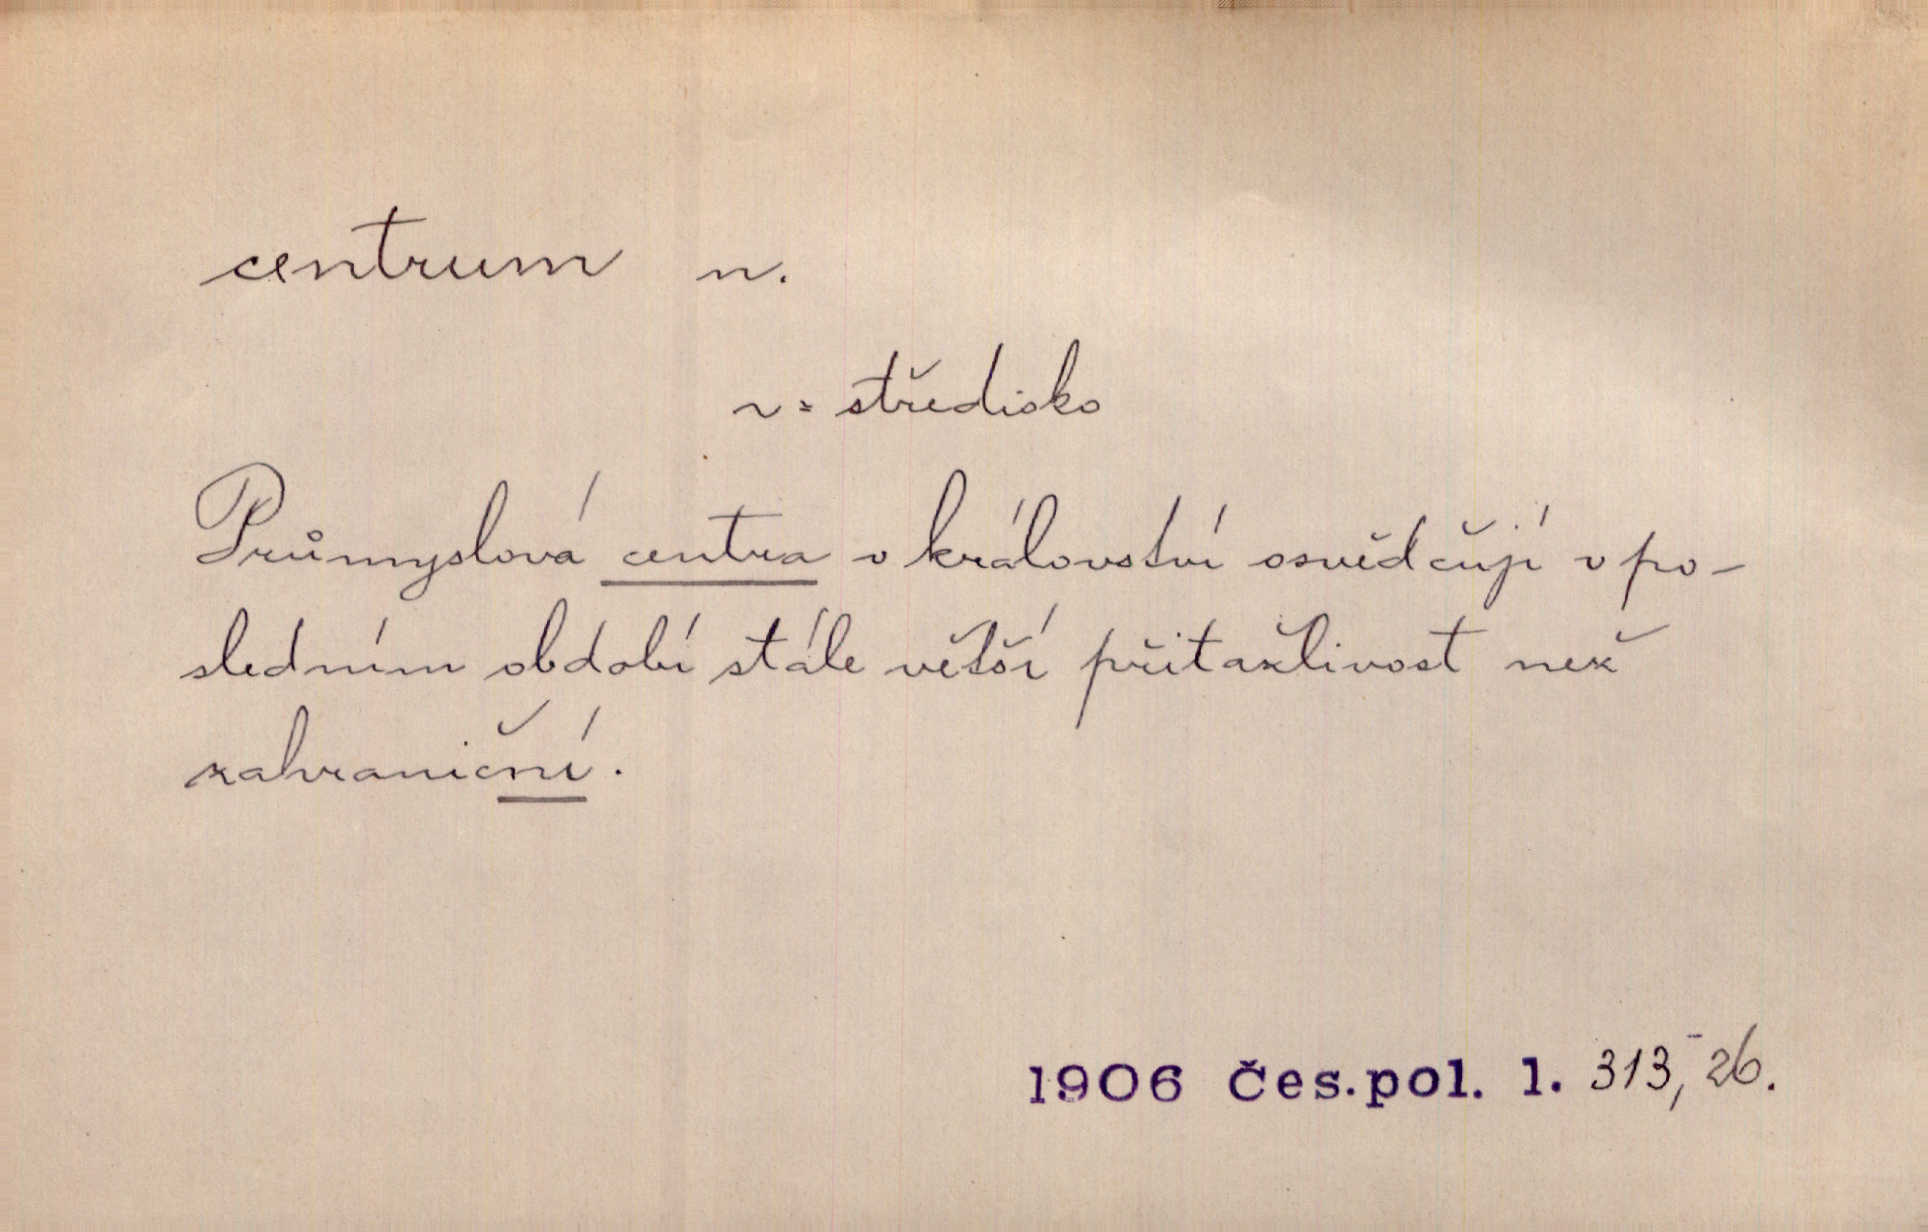 centrum n.
v: středisko
Průmyslová centra v království osvědčují v po-
sledním období stále větší přitažlivost než
zahraniční.
1906 Čes.pol. 1. 313, 26.